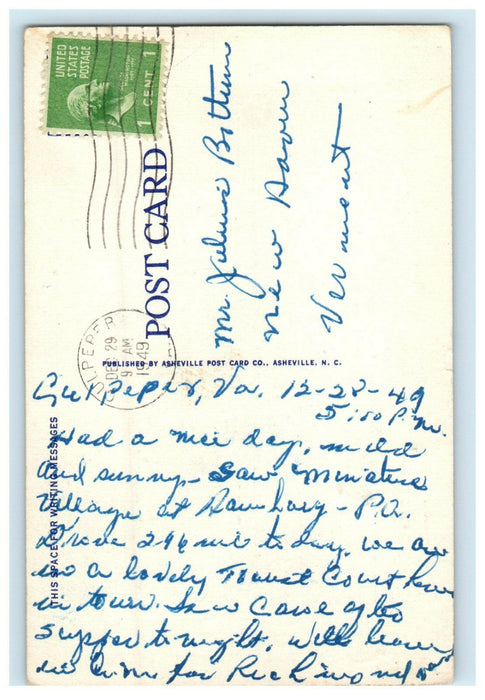 UNITED
STATES
POSTAGE
1 CENT 1
POST CARD
CULPEPER
DEC 29
9 AM
1949
Mr. Julius Bottum
New Haven
Vermont
PUBLISHED BY ASHEVILLE POST CARD CO., ASHEVILLE, N. C.
THIS SPACE FOR WRITING MESSAGES
Culpeper, Va. 12-28-49
5:00 P.M.
Had a nice day, mild
and sunny - Saw Miniature
Village at Hamburg - P.A.
Drove 246 mi today. We are
in a lovely Tourist Court here
in town.
supper tonight. Will leave
in a.m. for Richmond